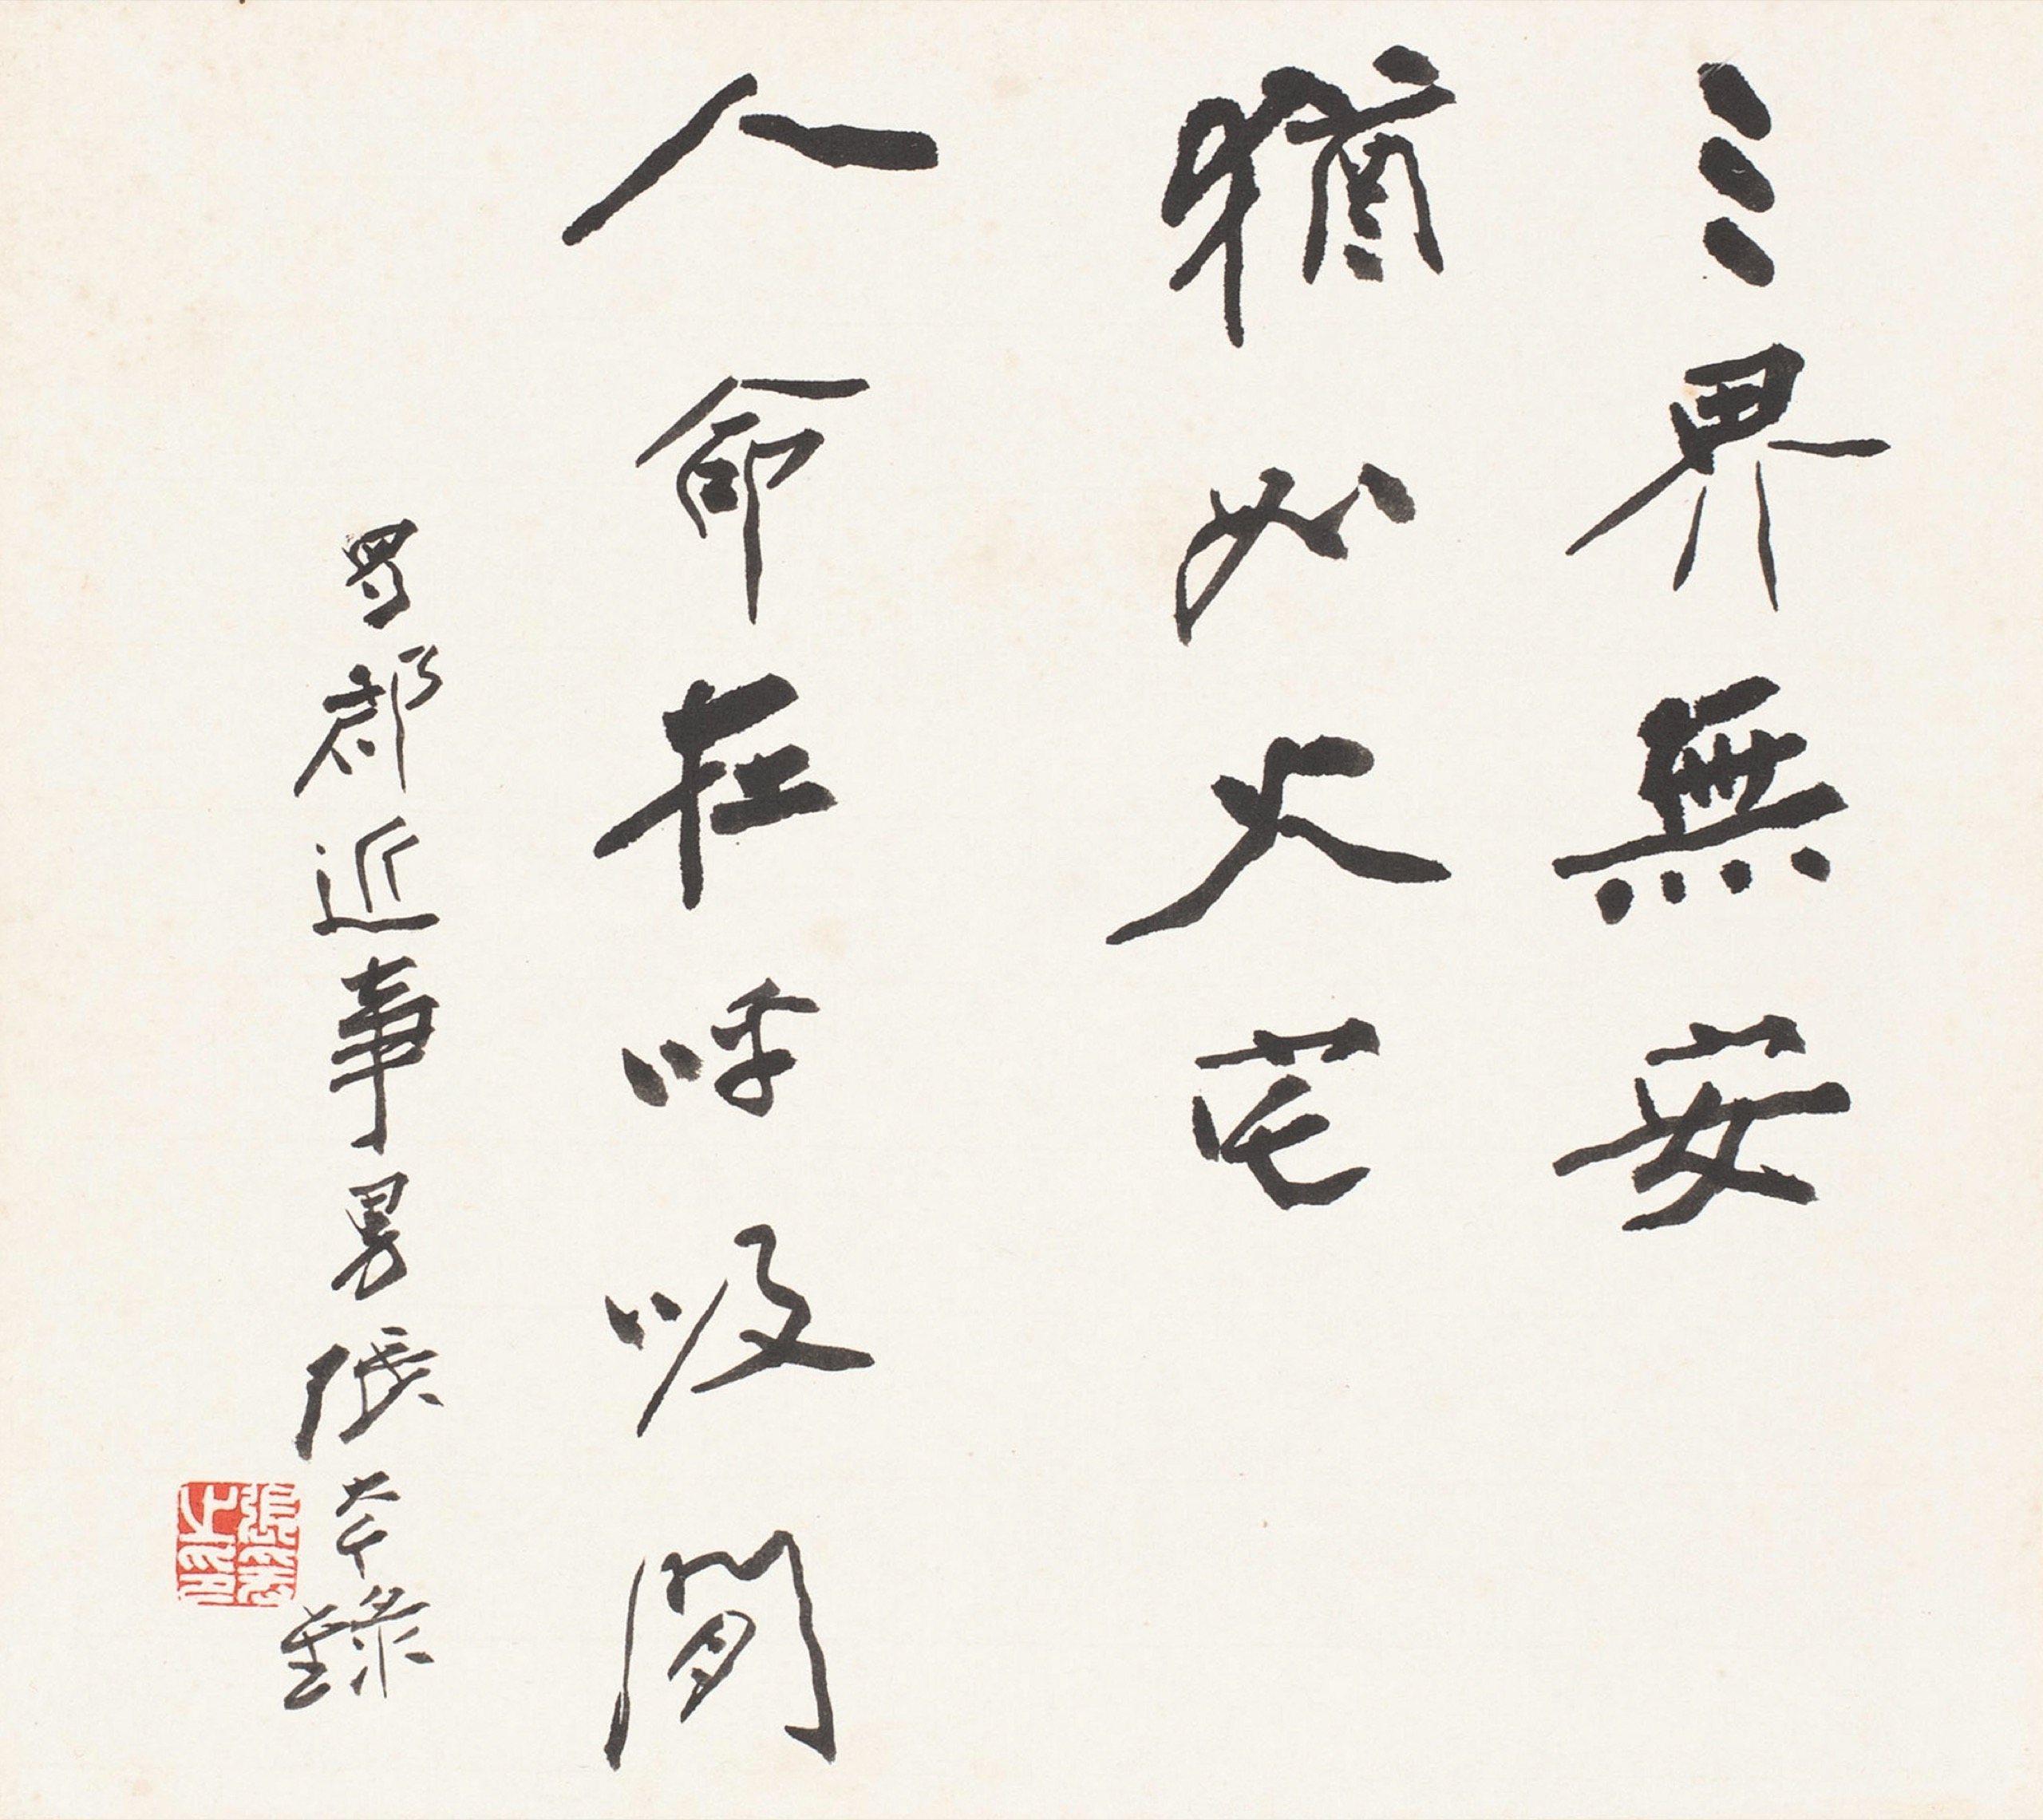 三界無安
猶如火宅
人命在呼吸間
蜀郡近事男張大千錄
張爰之印